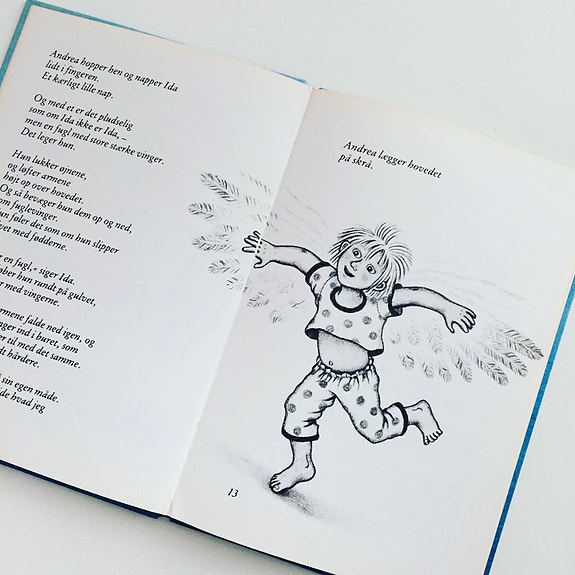 Andrea hopper hen og napper Ida
lidt i fingeren.
Et kærligt lille nap.
Og med et er det pludselig
som om Ida ikke er Ida, –
men en fugl med store stærke vinger.
Det leger hun.
Hun lukker øjnene,
og løfter armene
højt op over hovedet.
Og så bevæger hun dem op og ned,
om fuglevinger.
un føler det som om hun slipper
vet med fødderne.
r en fugl,« siger Ida.
ber hun rundt på gulvet,
r med vingerne.
rmene falde ned igen, og
nger ind i buret, som
er til med det samme.
dt hårdere.
å sin egen måde.
de hvad jeg
Andrea lægger hovedet
på skrå.
13